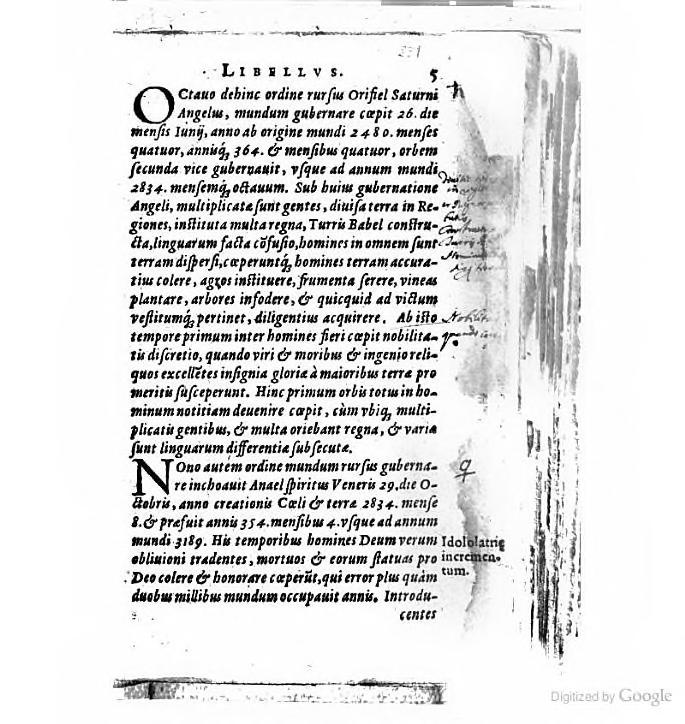 LIBELLVS. 5
OCtauo dehinc ordine rursus Orifiel Saturni
Angelus, mundum gubernare cœpit 26. die
mensis Iunij, anno ab origine mundi 2480. menses
quatuor, annisq́; 364. & mensibus quatuor, orbem
secunda vice gubernauit, vsque ad annum mundi
2834. mensemq́; octauum. Sub huius gubernatione
Angeli, multiplicatæ sunt gentes, diuisa terra in Re-
giones, instituta multa regna, Turris Babel constru-
cta, linguarum facta cõfusio, homines in omnem sunt
terram dispersi, cœperuntq́; homines terram accura-
tius colere, agros instituere, frumenta serere, vineas
plantare, arbores infodere, & quicquid ad victum
vestitumq́; pertinet, diligentius acquirere. Ab isto
tempore primum inter homines fieri cœpit nobilita-
tis discretio, quando viri & moribus & ingenio reli-
quos excellẽtes insignia gloriæ à maioribus terræ pro
meritis susceperunt. Hinc primum orbis totus in ho-
minum notitiam deuenire cœpit, cùm vbiq́; multi-
plicatis gentibus, & multa oriebant regna, & variæ
sunt linguarum differentiæ subsecutæ.
NOno autem ordine mundum rursus guberna-
re inchoauit Anael spiritus Veneris 29. die O-
ctobris, anno creationis Cœli & terræ 2834. mense
8. & præfuit annis 354. mensibus 4. vsque ad annum
mundi 3189. His temporibus homines Deum verum
obliuioni tradentes, mortuos & eorum statuas pro
Deo colere & honorare cœperũt, qui error plus quàm
duobus millibus mundum occupauit annis. Introdu-
centes
♀
Idololatrię
incremen-
tum.
Digitized by Google